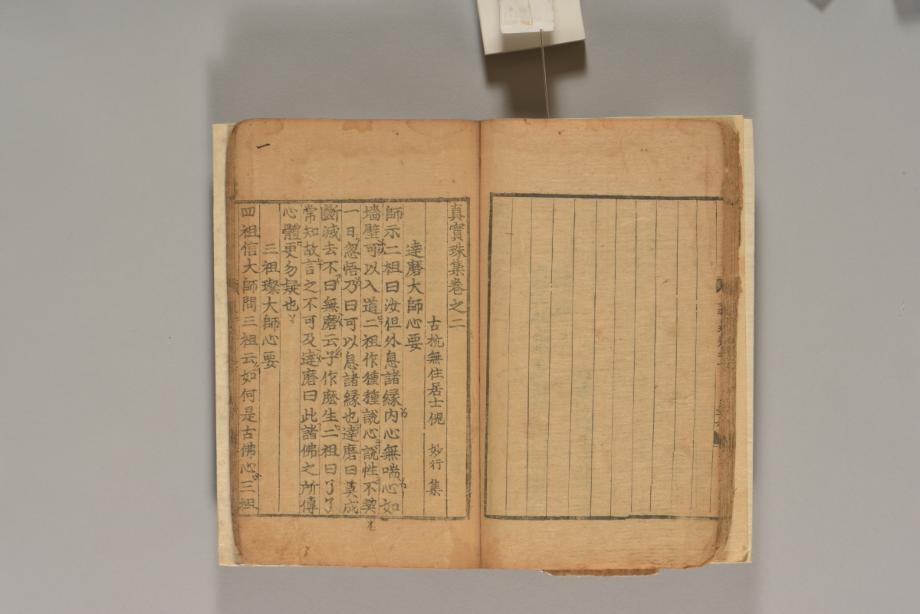 真寶珠集卷之二
古杭無住居士倪 妙行 集
達磨大師心要
師示二祖曰汝但外息諸緣内心無喘心如
墻壁可以入道二祖作種種說心說性不契
一日忽悟乃曰可以息諸緣也達磨曰莫成
斷滅去不曰無磨云子作麽生二祖曰了了
常知故言之不可及達磨曰此諸佛之所傳
心體更勿疑也
三祖璨大師心要
四祖信大師問三祖云如何是古佛心三祖
一